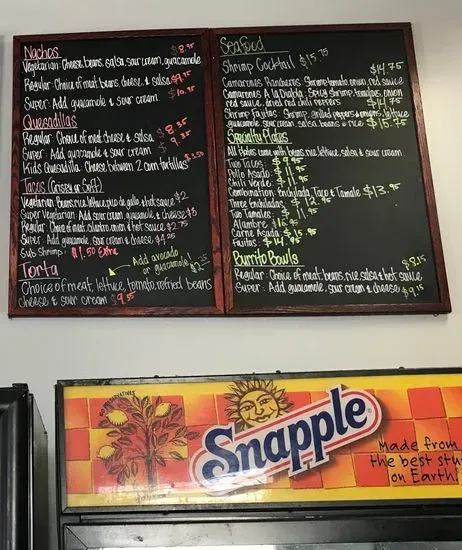 Nachos
Vegetarian: Cheese, beans, salsa, sour cream, guacamole $8.35
Regular: Choice of meat, beans, cheese, & salsa $9.75
Super: Add guacamole & sour cream $10.75
Quesadillas
Regular: Choice of meat, cheese & salsa $8.35
Super: Add guacamole & sour cream $9.35
Kids Quesadilla: Cheese between 2 corn tortillas $3.50
Tacos (Crispy or Soft)
Vegetarian: Beans, rice, lettuce, pico de gallo & hot sauce $2
Super Vegetarian: Add sour cream, guacamole, & cheese $
Regular: Choice of meat, cilantro, onion & hot sauce $2.75
Super: Add guacamole, sour cream & cheese $4.25
Sub Shrimp: $1.50 Extra
Add avocado
or guacamole! $2.25
Torta
Choice of meat, lettuce, tomato, refried beans
cheese & sour cream $9.55
Seafood
Shrimp Cocktail $15.75
Camarones Rancheros: Shrimp, tomato, onion, red sauce $14.75
Camarones A la Diabla: Spicy shrimp, tomatoes, onion
red sauce, dried red chili peppers $14.75
Shrimp Fajitas: Shrimp, grilled peppers & onions, lettuce
guacamole, sour cream, salsa, beans & rice $15.75
Specialty Plates
All Plates come with beans, rice, lettuce, salsa & sour cream
Two Tacos: $9.95
Pollo Asado: $11.95
Chili Verde: $11.95
Combination: Enchilada, Taco & Tamale $13.95
Three Enchiladas: $12.95
Two Tamales: $11.95
Alambre $16.95
Carne Asada $15.95
Fajitas: $14.95
Burrito Bowls
Regular: Choice of meat, beans, rice, salsa & hot sauce $8.15
Super: Add guacamole, sour cream & cheese $9.15
Snapple
Made from
the best stu
on Earth.